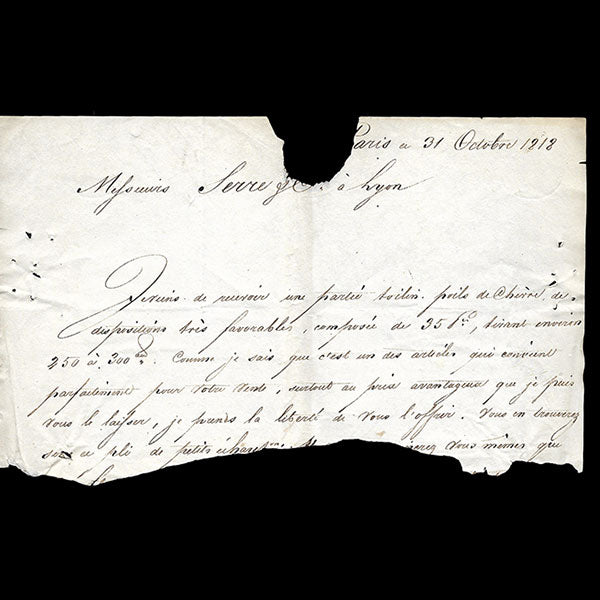 Paris ce 31 Octobre 1818
Messieurs Serre & Cie. à Lyon
Je viens de recevoir une partie toilin poils de Chèvre, de
dispositions très favorables, composée de 35 tirant environ
250 à 300. Comme je sais que c'est un des articles qui convient
parfaitement pour votre vente, surtout au prix avantageux que je puis
vous le laisser, je prends la liberté de vous l'offrir. Vous en trouverez
sous ce pli de petits échans vous mêmes que